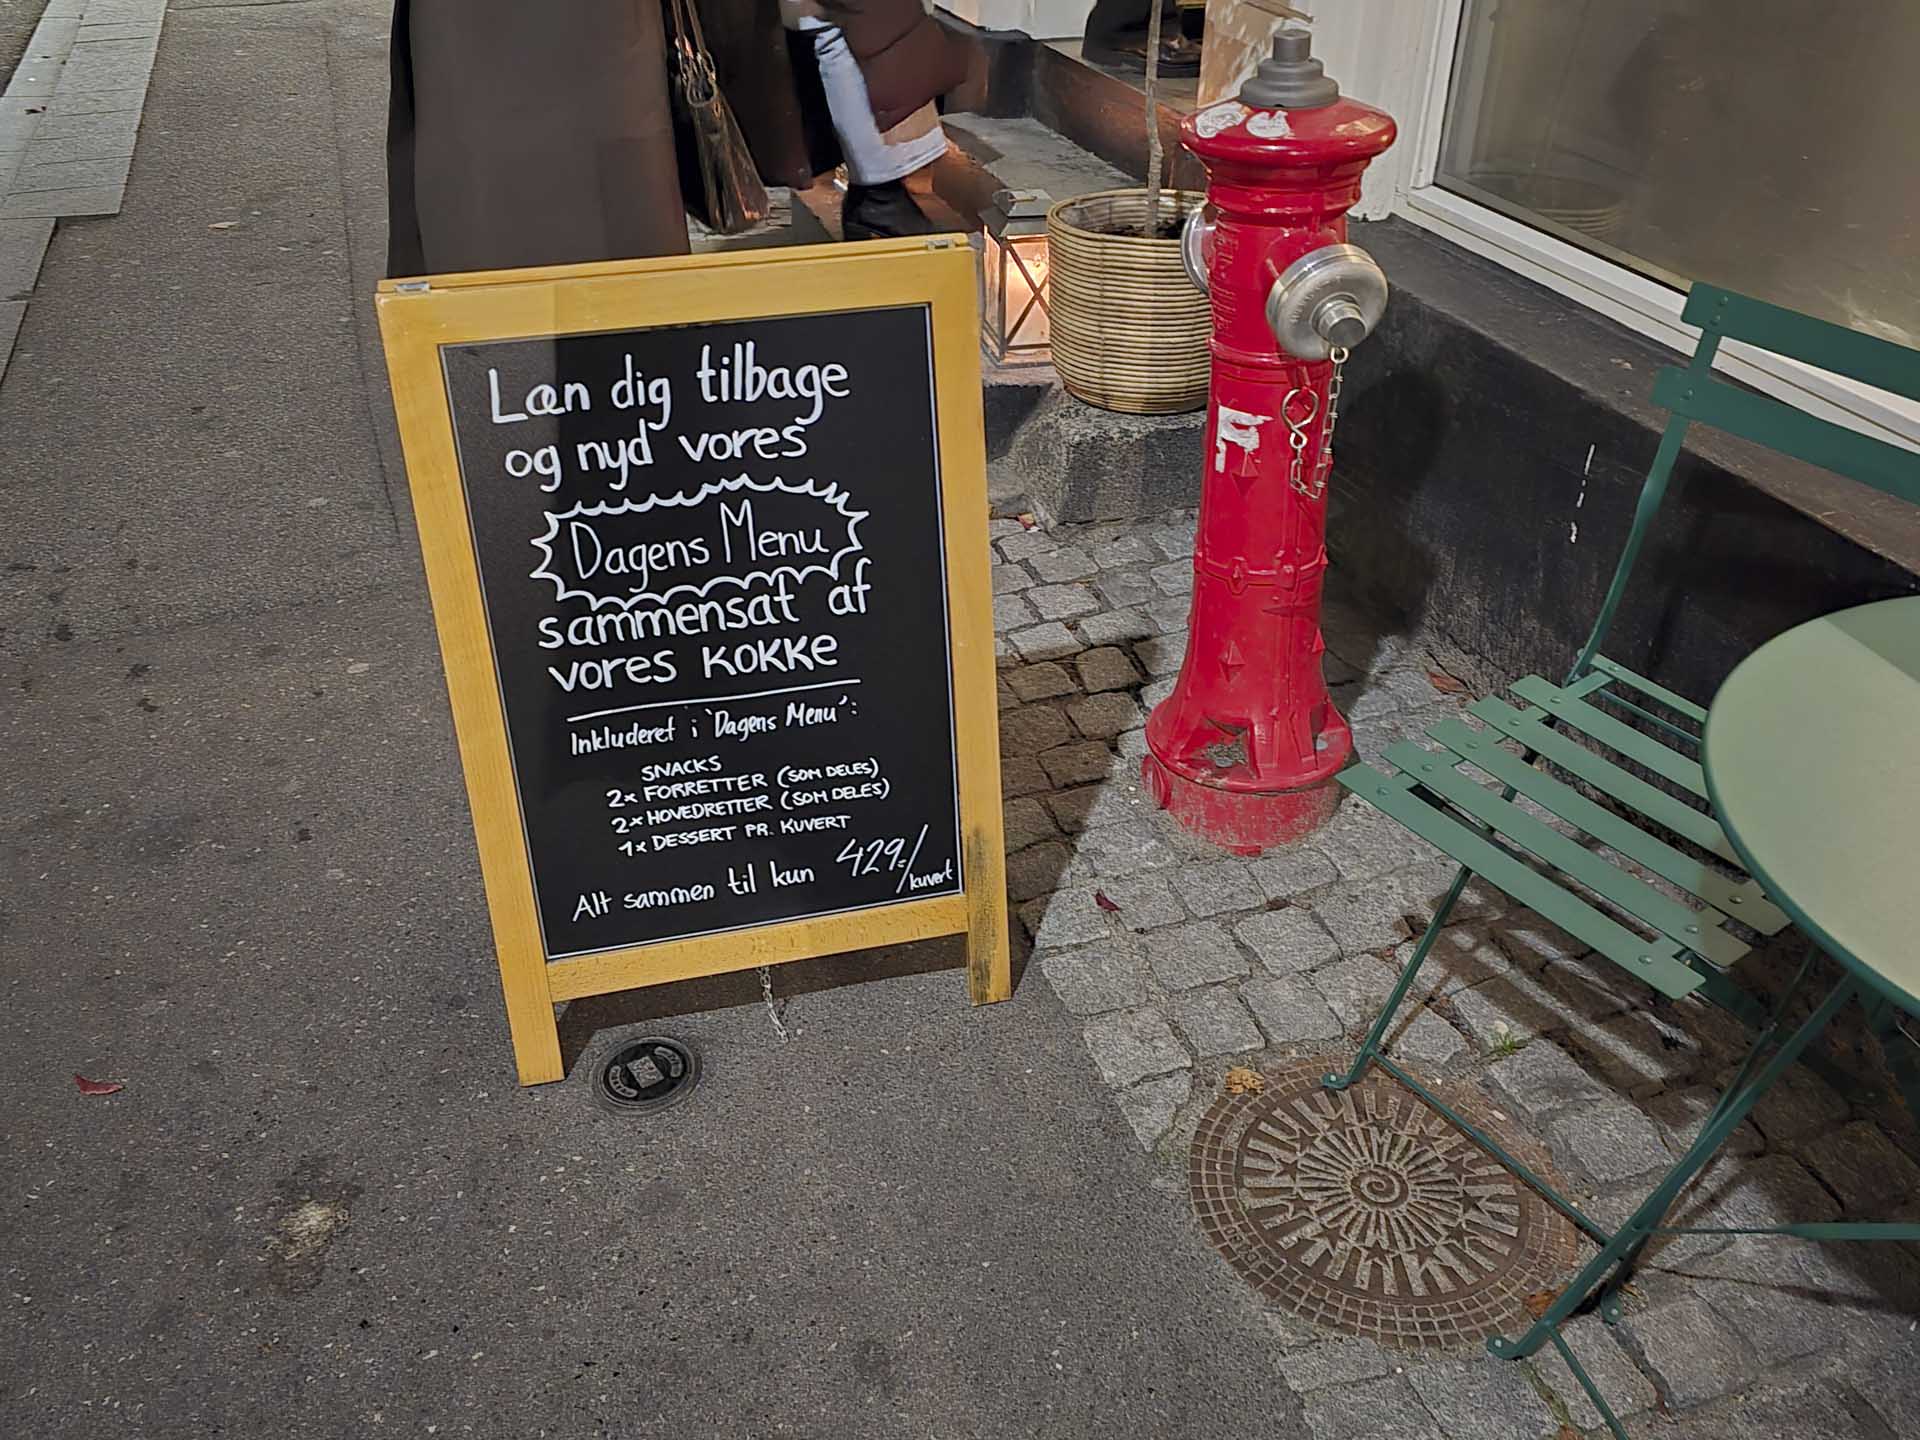 Læn dig tilbage
og nyd vores
Dagens Menu
sammensat af
vores KOKKE
Inkluderet i 'Dagens Menu':
SNACKS
2x FORRETTER (SOM DELES)
2x HOVEDRETTER (SOM DELES)
1x DESSERT PR. KUVERT
Alt sammen til kun 429,-/kuvert